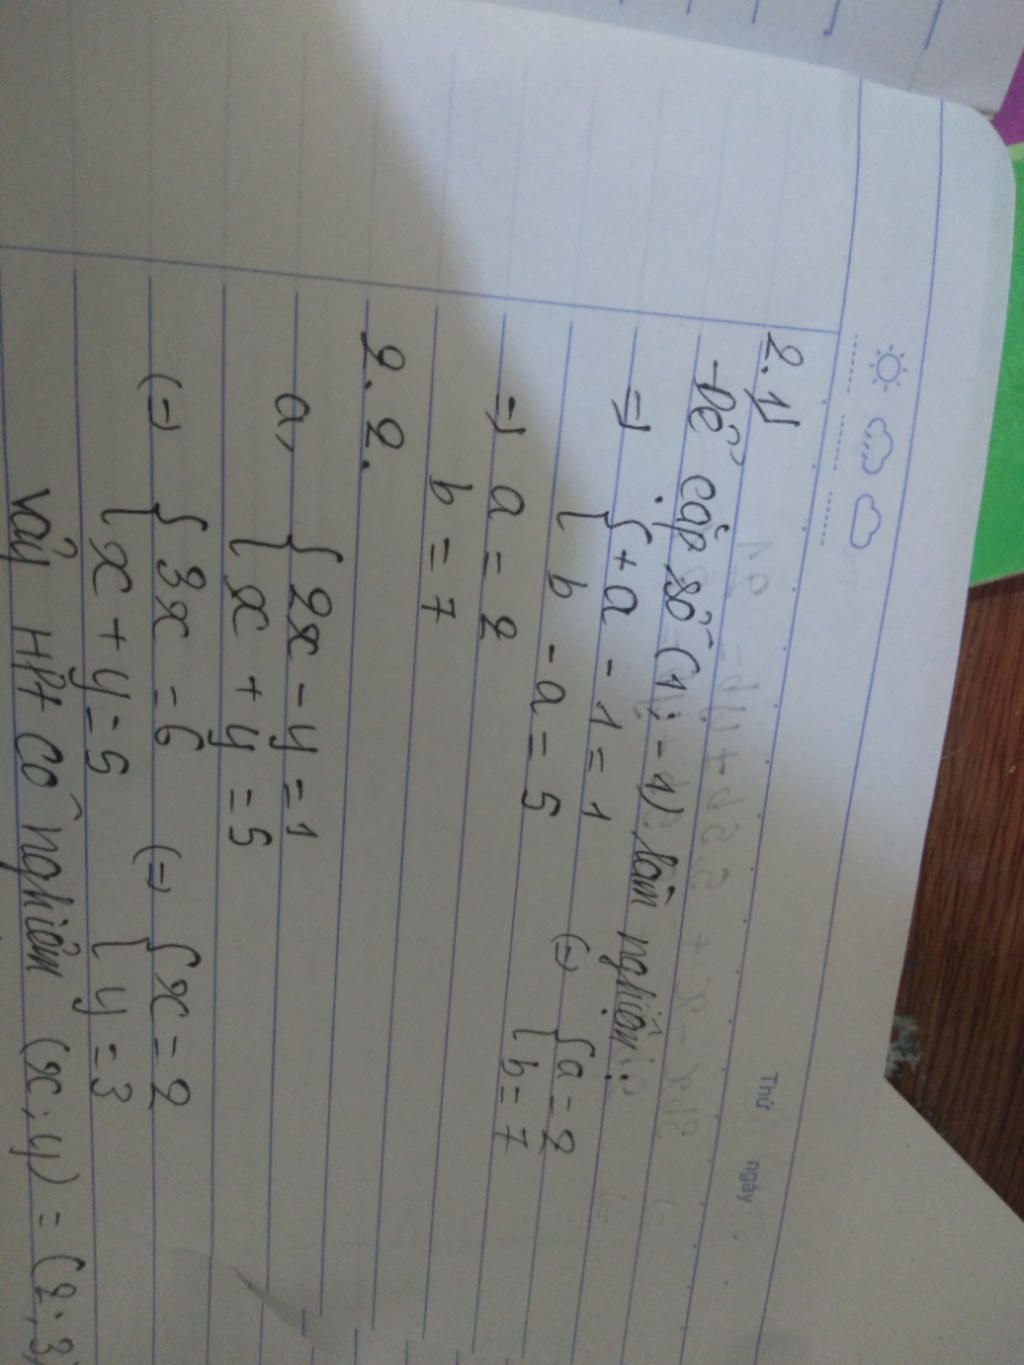 Thứ ngày
2.1)
Để cặp số (1; -1) làm nghiệm:
=> { +a - 1 = 1 (=) { a = 2
{ b - a = 5 { b = 7
=> a = 2
b = 7
2.2.
a, { 2x - y = 1
{ x + y = 5
(=) { 3x = 6 (=) { x = 2
{ x + y = 5 { y = 3
Vậy HPt có nghiệm (x; y) = (2; 3)